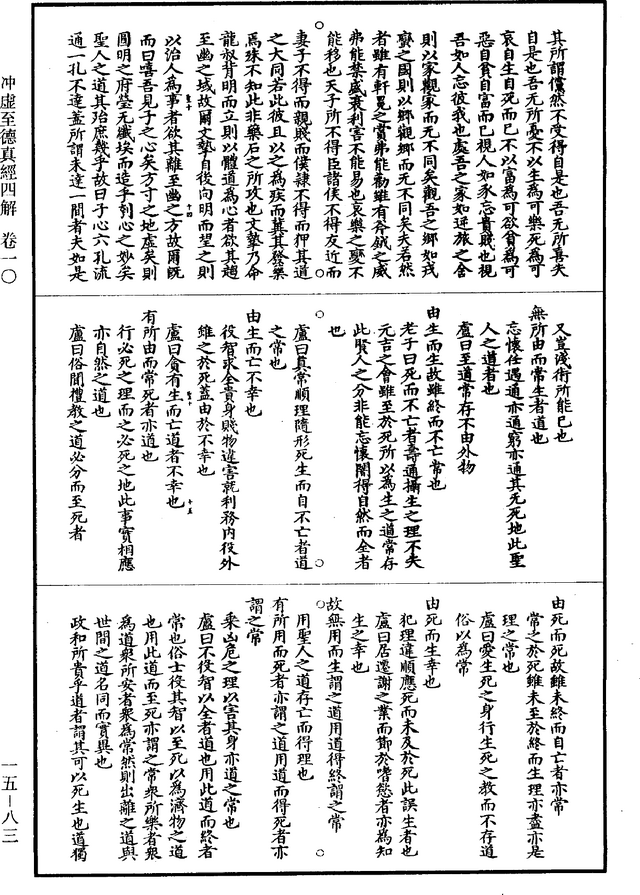 其所謂儻然不受得自是也吾无所喜失
自是也吾无所憂不以生為可樂死為可
哀自生自死而已不以富為可欲貧為可
惡自貧自富而已視人如豕忘貴賤也視
吾如人忘彼我也處吾之家如逆旅之舍
則以家觀家而无不同矣觀吾之鄉如戎
蠻之國則以鄉觀鄉而无不同矣夫若然
者雖有軒冕之賞弗能勸雖有斧鉞之威
弗能禁盛衰利害不能易也哀樂之變不
能移也天子所不得臣諸侯不得友近而
妻子不得而親賤而僕隸不得而狎其道
之大同若此彼且以之為疾而冀其發藥
焉殊不知此非藥石之所攻也文摯乃命
龍叔背明而立則以體道為心者欲其趨
至幽之域故文摯自後向明而望之則
以治人為事者欲其離至幽之方故爾既
而曰嘻吾見子之心矣方寸之地虛矣則
圓明之府瑩无纖埃而造乎刳心之妙矣
聖人之道其殆庶幾乎故曰子心六孔流
通一孔不達蓋所謂未達一間者夫如是
冲虛至德真經四解 卷一〇
又豈淺術所能已也
無所由而常生者道也
忘懷任遇通亦通窮亦通其无死地此聖
人之道者也
盧曰至道常存不由外物
由生而生故雖終而不亡常也
老子曰死而不亡者壽通攝生之理不失
元吉之會雖至於死所以為生之道常存
此賢人之分非能忘懷闇得自然而全者
也
盧曰真常順理隨形死生而自不亡者道
之常也
由生而亡不幸也
役智求全貴身賤物違害就利務内役外
雖之於死蓋由於不幸也
盧曰貪有生而亡道者不幸也
有所由而常死者亦道也
行必死之理而之必死之地此事實相應
亦自然之道也
盧曰俗聞禮教之道必分而至死者
由死而死故雖未終而自亡者亦常
常之於死雖未至於終而生理亦盡亦是
理之常也
盧曰愛生死之身行生死之教而不存道
俗以為常
由死而生幸也
犯理違順應死而未及於死此誤生者也
盧曰居遷謝之業而節於嗜慾者亦為知
生之幸也
故無用而生謂之道用道得終謂之常
用聖人之道存亡而得理也
有所用而死者亦謂之道用道而得死者亦
謂之常
乘凶危之理以害其身亦道之常也
盧曰不役智以全者道也用此道而終者
常也俗士役其智以至死以為濟物之道
也用此道而至死亦謂之常衆所樂者衆
為道衆所安者衆為常然則出離之道與
世間之道名同而實異也
政和所貴乎道者謂其可以死生也道獨
一五-八三